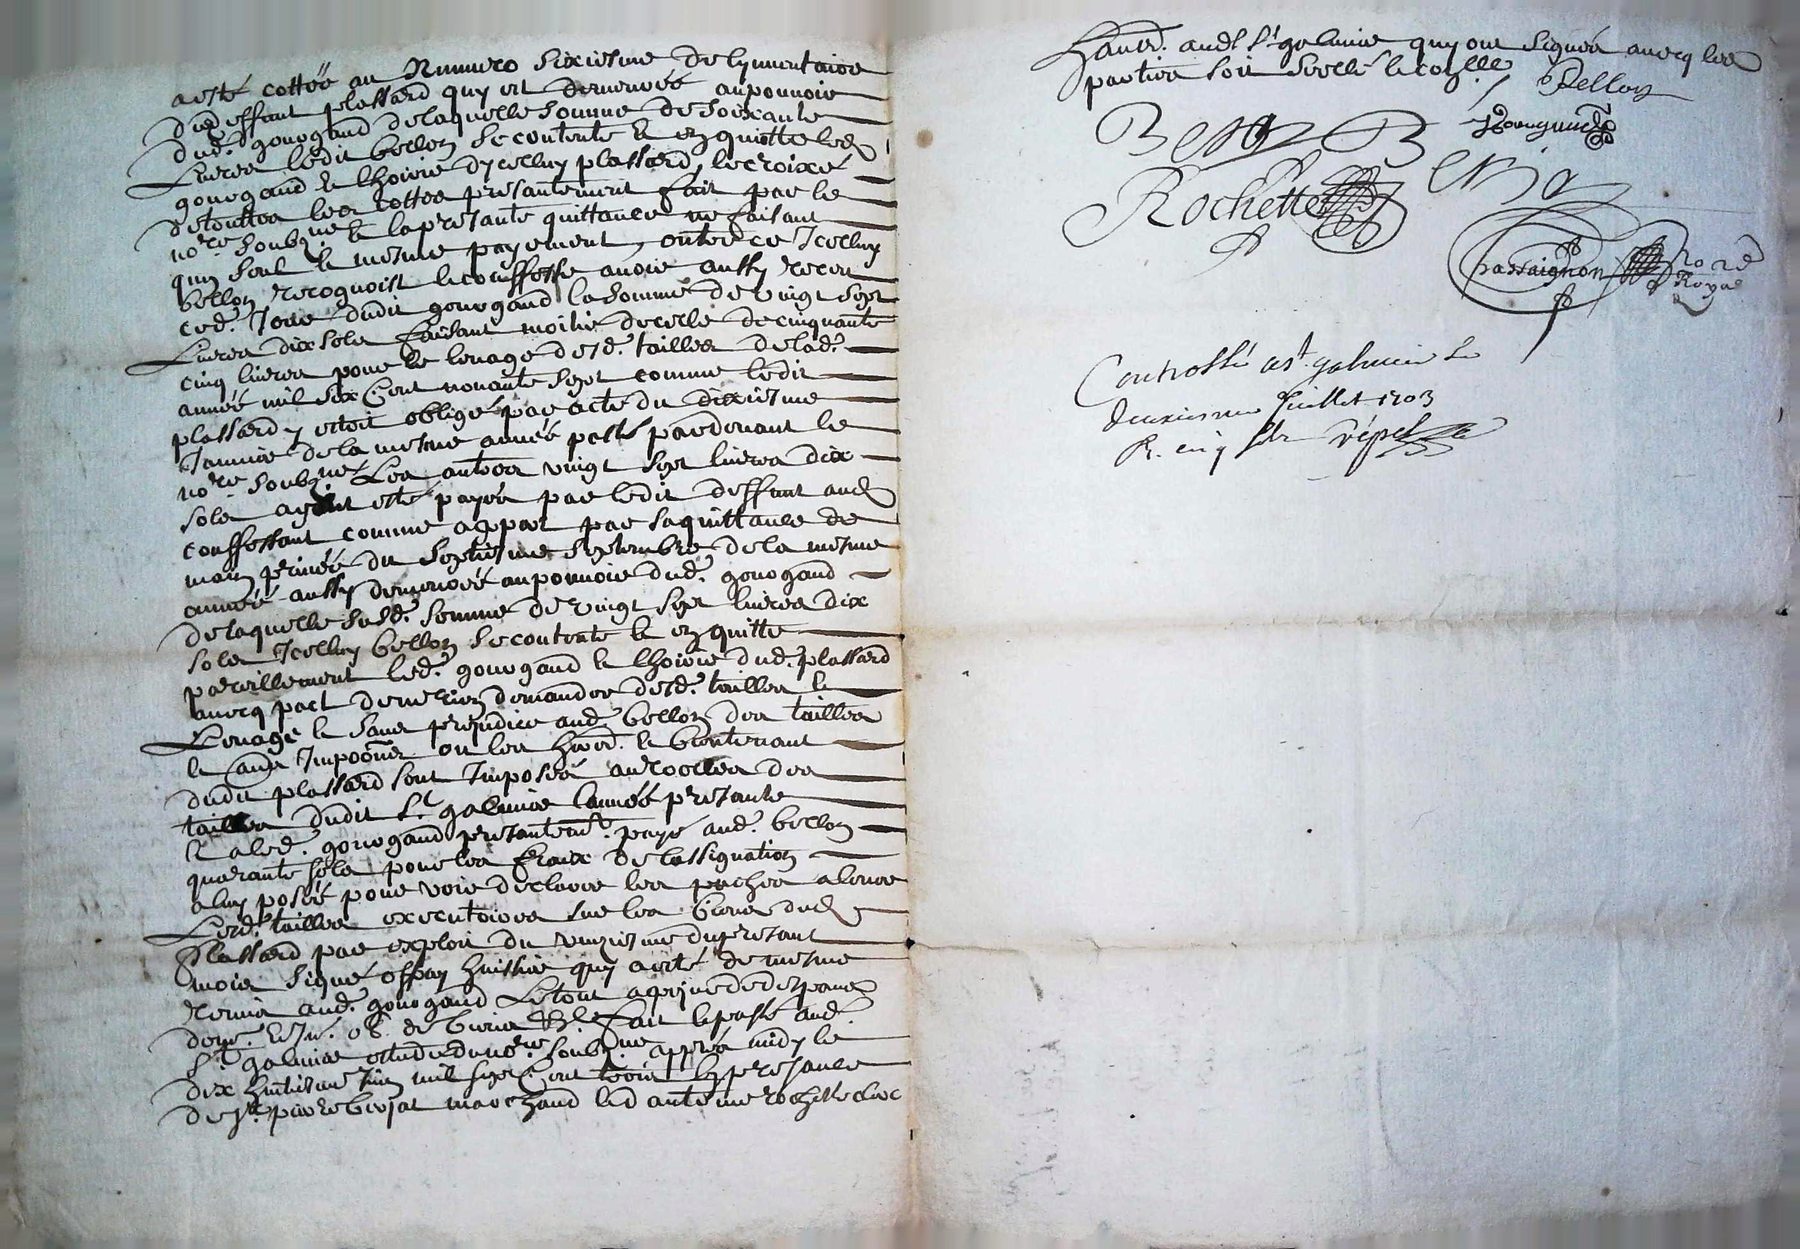 a esté cottée au Numero sixiesme de lynventaire
dud deffunt plassard quy est demeurée aupouvoir
dud. gouvgaud de laquelle somme de soixante
Livres ledit bellon se contente & en quitte led
gouvgaud & lhoirie dycelluy plassard, lecroixé
detouttes les cottes presantement fait par le
nore soubz.né & la presante quittance ne faisant
quun seul & mesme payement, outre ce Icelluy
bellon recognoist & confesse avoir aussy receu
ced. Jour dudit gouvgaud la somme de vingt sept
Livres dix sols faisant moitié de celle de cinquante
cinq livres pour le levage desd. tailles de lad.
année mil six Cent nonante sept comme ledit
plassard y estoit obligé par acte du dixiesme
Janvier de la mesme année passé pardevant le
nore. soubz.né Les autres vingt sept livres dix
sols ayant esté payés par ledit deffunt aud
conffessant comme appert par sa quittance de
main privée du septiesme septembre de la mesme
année aussy demeurée aupouvoir dud. gouvgaud
de laquelle susd. somme de vingt sept livres dix
sols Icelluy bellon se contente & en quitte
pareillement led. gouvgaud & lhoirie dud. plassard
avecq pact de ne rien demander desd. tailles &
Levage & sans prejudice aud bellon des tailles
& aues Impoõns ou les hoird. & bientenant
dudit plassard sont Imposés au roolles des
tailles dudit St galmier lannée presante
& a led. gouvgaud presantemt. payé aud. bellon
quarante sols pour les fraix de lassignation
a luy posée pour voir declarer les paches a lever
Lesd. tailles executoires sur les biens dud
plassard par exploit du unziesme dupresant
mois signé offray huissier quy a esté de mesme
remis aud. gouvgaud Le tout a peyne de despans
fait & passé aud.
St galmier estude dunore. soubz.né appres midy le
dix huitiesme Juin mil sept Cent trois En presance
de sr. pierre marchand & dantoine rochette clerc
havit. aud St galmier quy ont signés avecq les
parties soit scellé
Bellon
Rochette
Passaignon no re
Royal
Controllé a st. galmier le
deuxiesme Juillet 1703
R. cinq sols